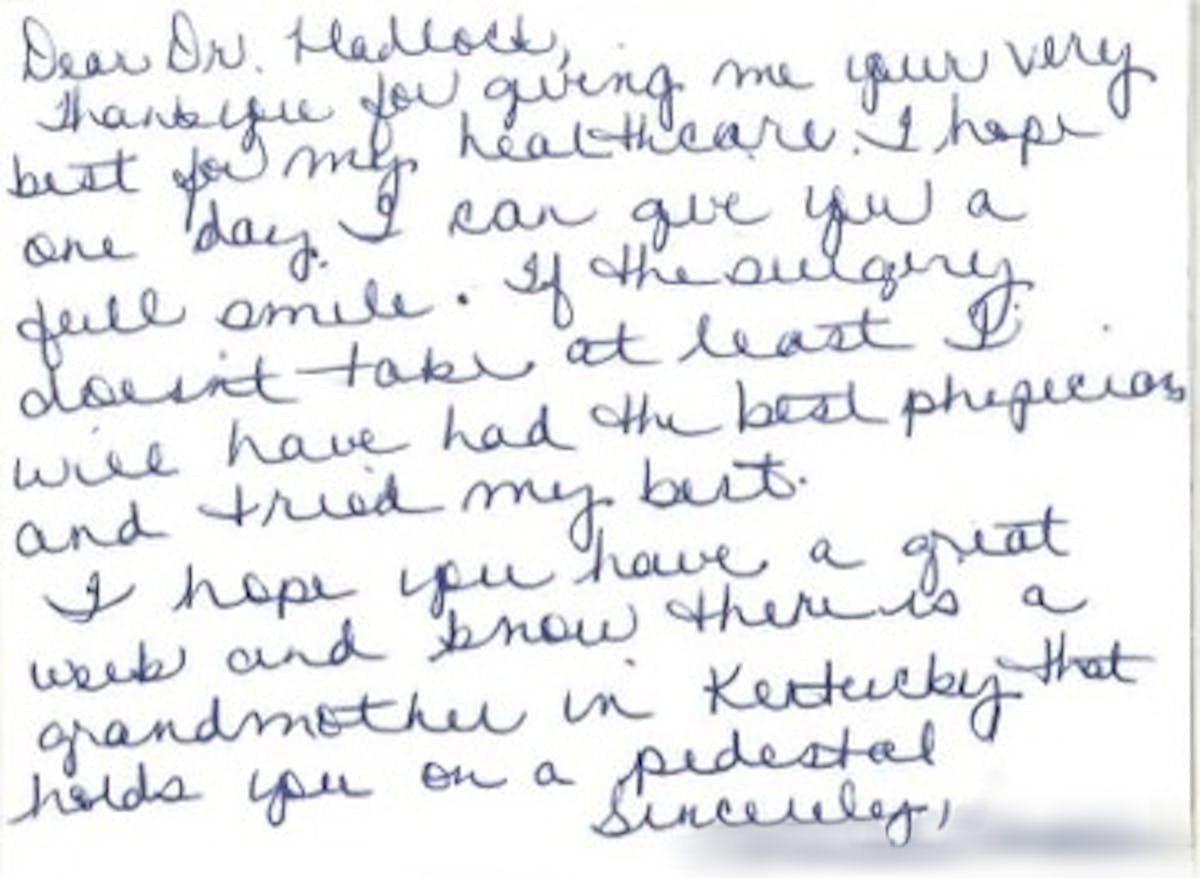 Dear Dr. Hadlock,
Thank you for giving me your very
best for my healthcare. I hope
one day I can give you a
full smile. If the surgery
doesn't take at least I
will have had the best physician
and tried my best.
I hope you have a great
week and know there is a
grandmother in Kentucky that
holds you on a pedestal
Sincerely,